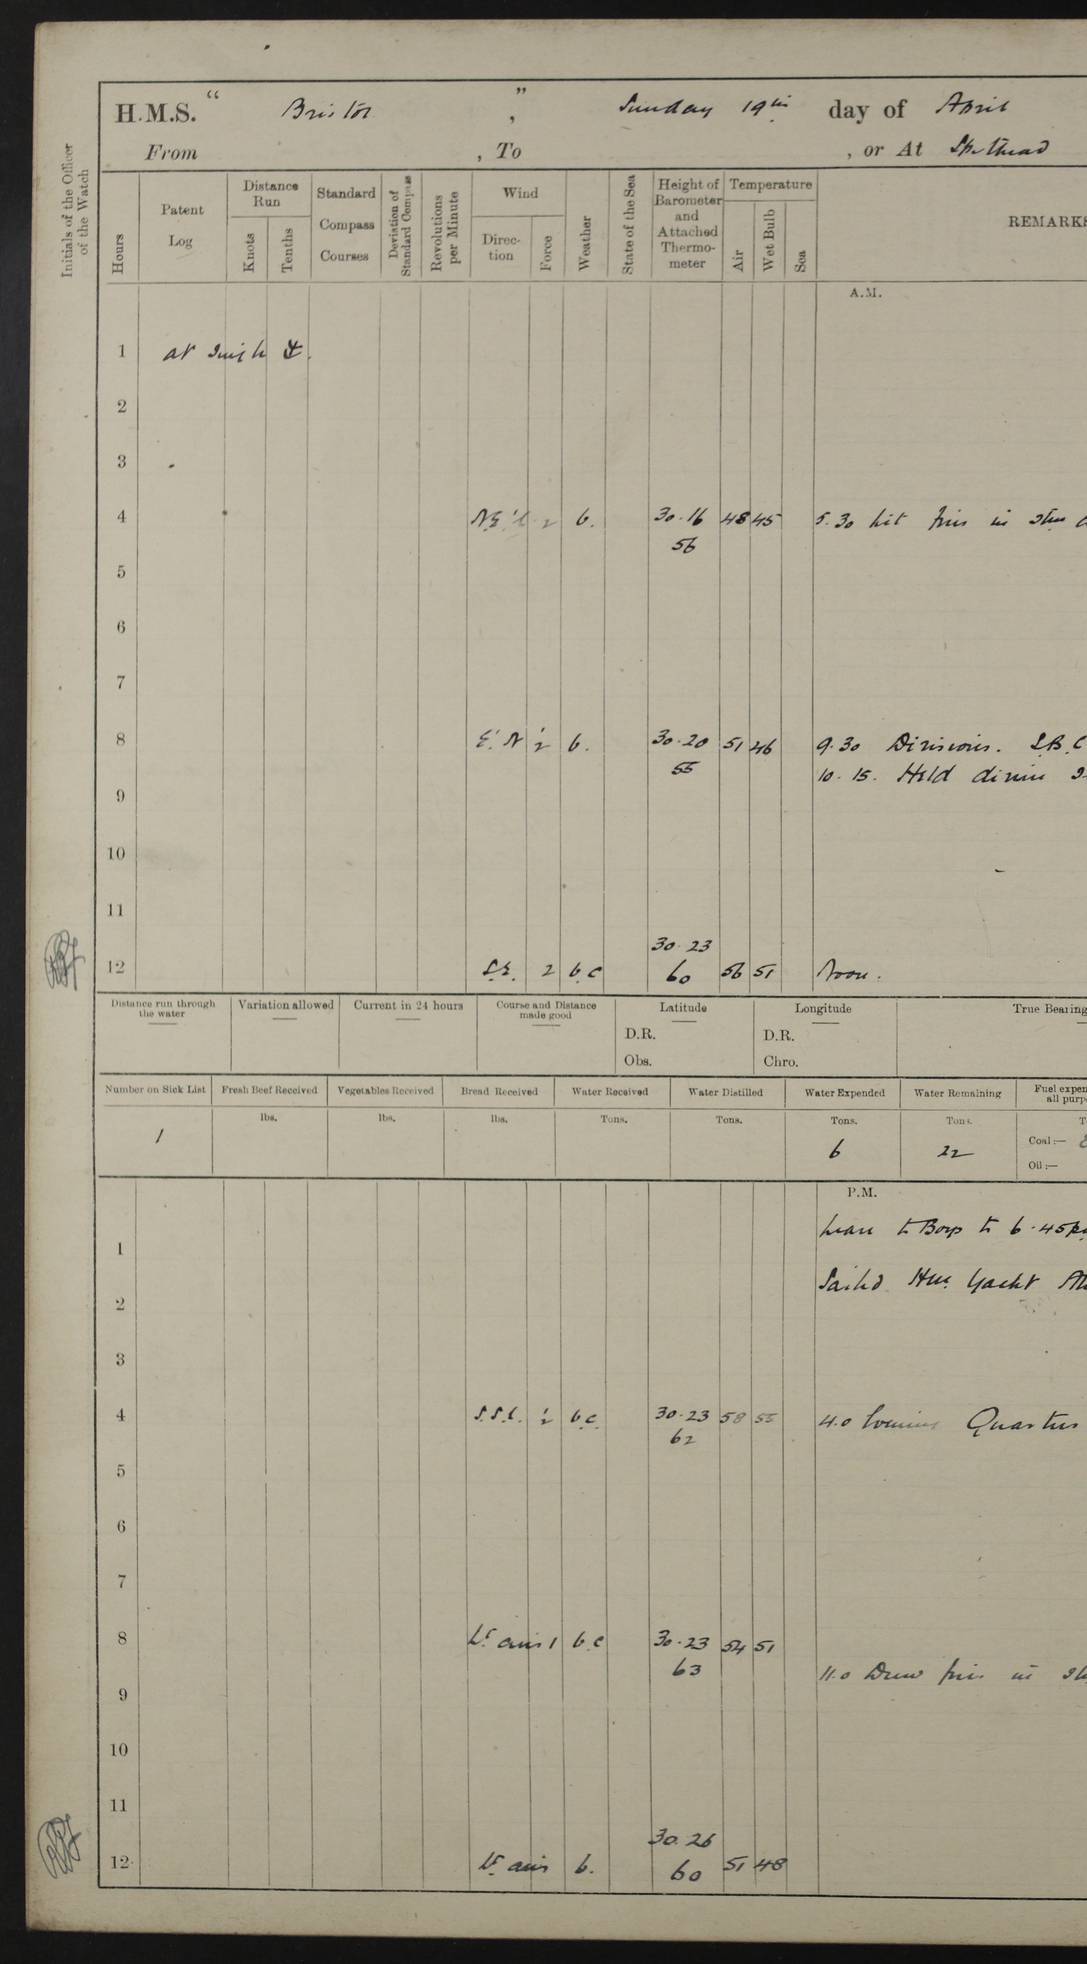 H.M.S. " Bristol ", Sunday 19th day of April
From , To , or At Spithead
Initials of the Officer of the Watch
Hours
Patent Log
Distance Run
Knots
Tenths
Standard Compass Courses
Deviation of Standard Compass
Revolutions per Minute
Wind
Direction
Force
Weather
State of the Sea
Height of Barometer and Attached Thermometer
Temperature
Air
Wet Bulb
Sea
REMARKS
A.M.
1 at Single ⚓.
2
3
4 NE'l 2 b. 30.16 48 45 5.30 lit fires in
56
5
6
7
8 E'N 1/2 b. 30.20 51 46 9.30 Divisions.
55 10.15. Held divine
9
10
11
30.23
12 SE. 2 bc 60 56 51 Noon.
Distance run through the water
Variation allowed
Current in 24 hours
Course and Distance made good
Latitude
D.R.
Obs.
Longitude
D.R.
Chro.
True Bearing
Number on Sick List
Fresh Beef Received
Vegetables Received
Bread Received
Water Received
Water Distilled
Water Expended
Water Remaining
Fuel expen
all purp
lbs. lbs. lbs. Tons. Tons. Tons. Tons. T
1 6 22 Coal:—
Oil:—
P.M.
Leave to Boys to 6.45
1
Sailed Yacht
2
3
4 1/2 bc. 30.23 58 55 4.0 Evening Quarters
62
5
6
7
8 Lt airs 1 b.c 30.23 54 51
63 11.0 Drew fires in
9
10
11
30.26
12 Lt airs b. 60 51 48